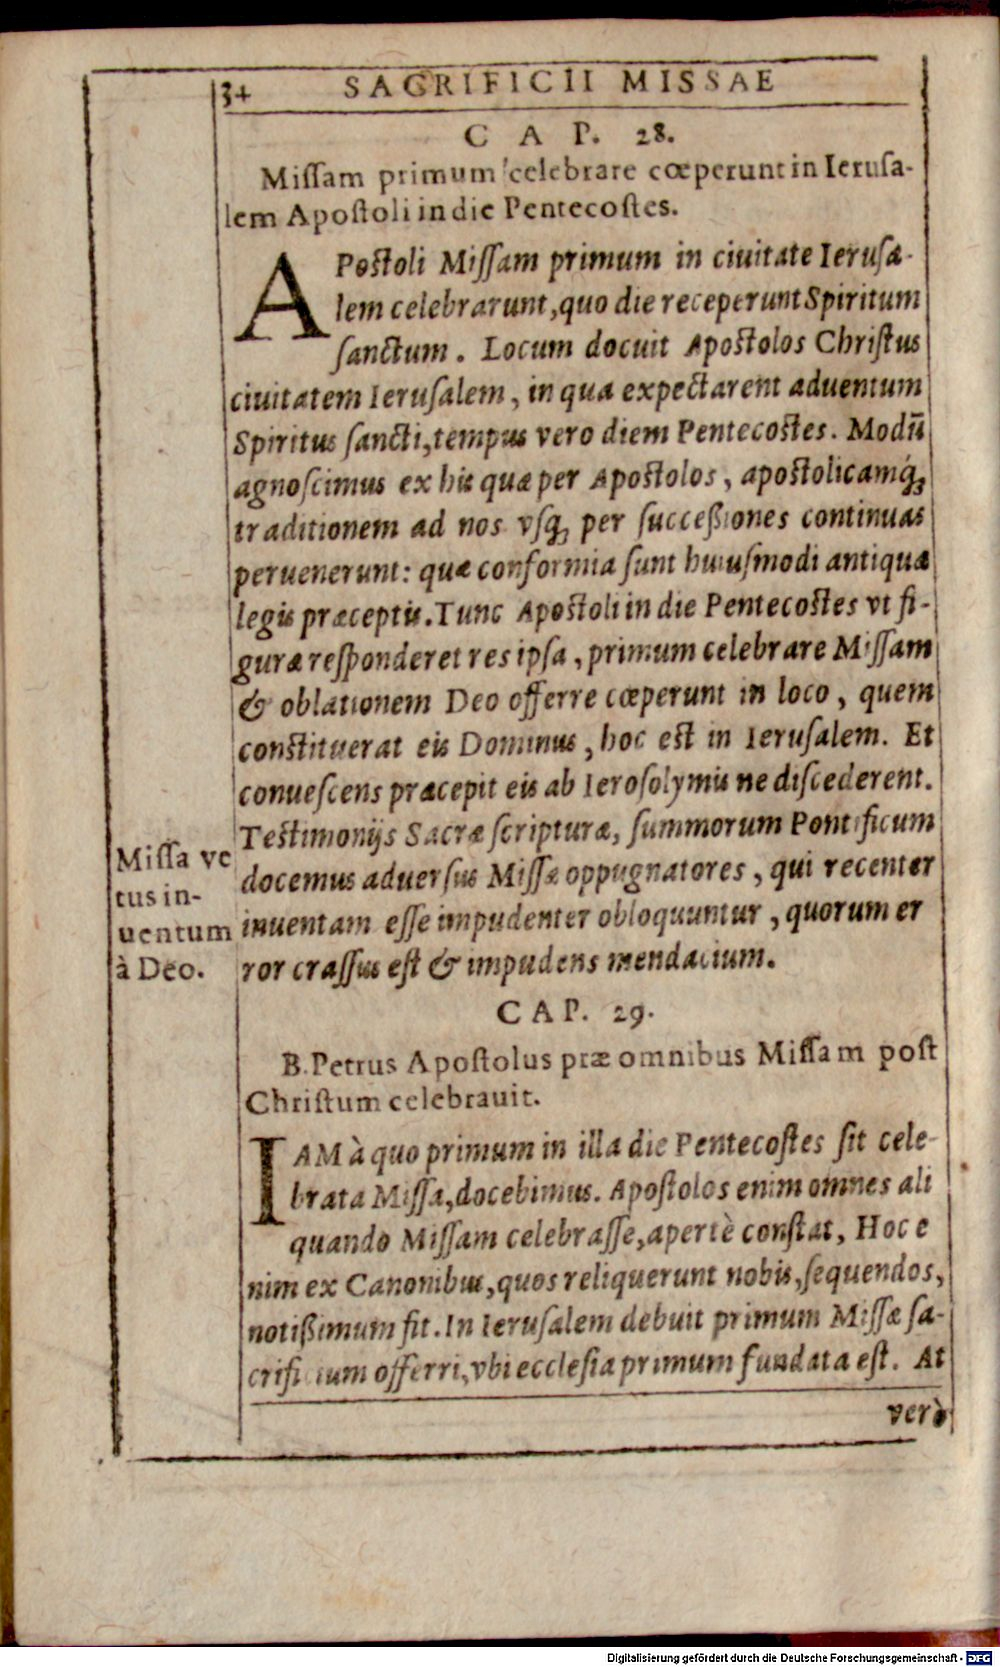 34 SACRIFICII MISSAE
CAP. 28.
Miſſam primum celebrare cœperunt in Ieruſa-
lem Apoſtoli in die Pentecoſtes.
APoſtoli Miſſam primum in ciuitate Ieruſa-
lem celebrarunt, quo die receperunt Spiritum
ſanctum. Locum docuit Apoſtolos Chriſtus
ciuitatem Ieruſalem, in qua expectarent aduentum
Spiritus ſancti, tempus vero diem Pentecoſtes. Modū
agnoſcimus ex his quæ per Apoſtolos, apoſtolicamq́;
traditionem ad nos vſq; per ſucceßiones continuas
peruenerunt: quæ conformia ſunt huiuſmodi antiquæ
legis præceptis. Tunc Apoſtoli in die Pentecoſtes vt fi-
guræ reſponderet res ipſa, primum celebrare Miſſam
& oblationem Deo offerre cœperunt in loco, quem
conſtituerat eis Dominus, hoc eſt in Ieruſalem. Et
conueſcens præcepit eis ab Ieroſolymis ne diſcederent.
Teſtimonijs Sacræ ſcripturæ, ſummorum Pontificum
docemus aduerſus Miſſæ oppugnatores, qui recenter
inuentam eſſe impudenter obloquuntur, quorum er
ror craſſus eſt & impudens mendacium.
Miſſa ve
tus in-
uentum
à Deo.
CAP. 29.
B. Petrus Apoſtolus præ omnibus Miſſam poſt
Chriſtum celebrauit.
IAM à quo primum in illa die Pentecoſtes ſit cele-
brata Miſſa, docebimus. Apoſtolos enim omnes ali
quando Miſſam celebraſſe, apertè conſtat, Hoc e
nim ex Canonibus, quos reliquerunt nobis, ſequendos,
notißimum fit. In Ieruſalem debuit primum Miſſæ ſa-
crificium offerri, vbi eccleſia primum fundata eſt. At
verò
Digitalisierung gefördert durch die Deutsche Forschungsgemeinschaft - DFG